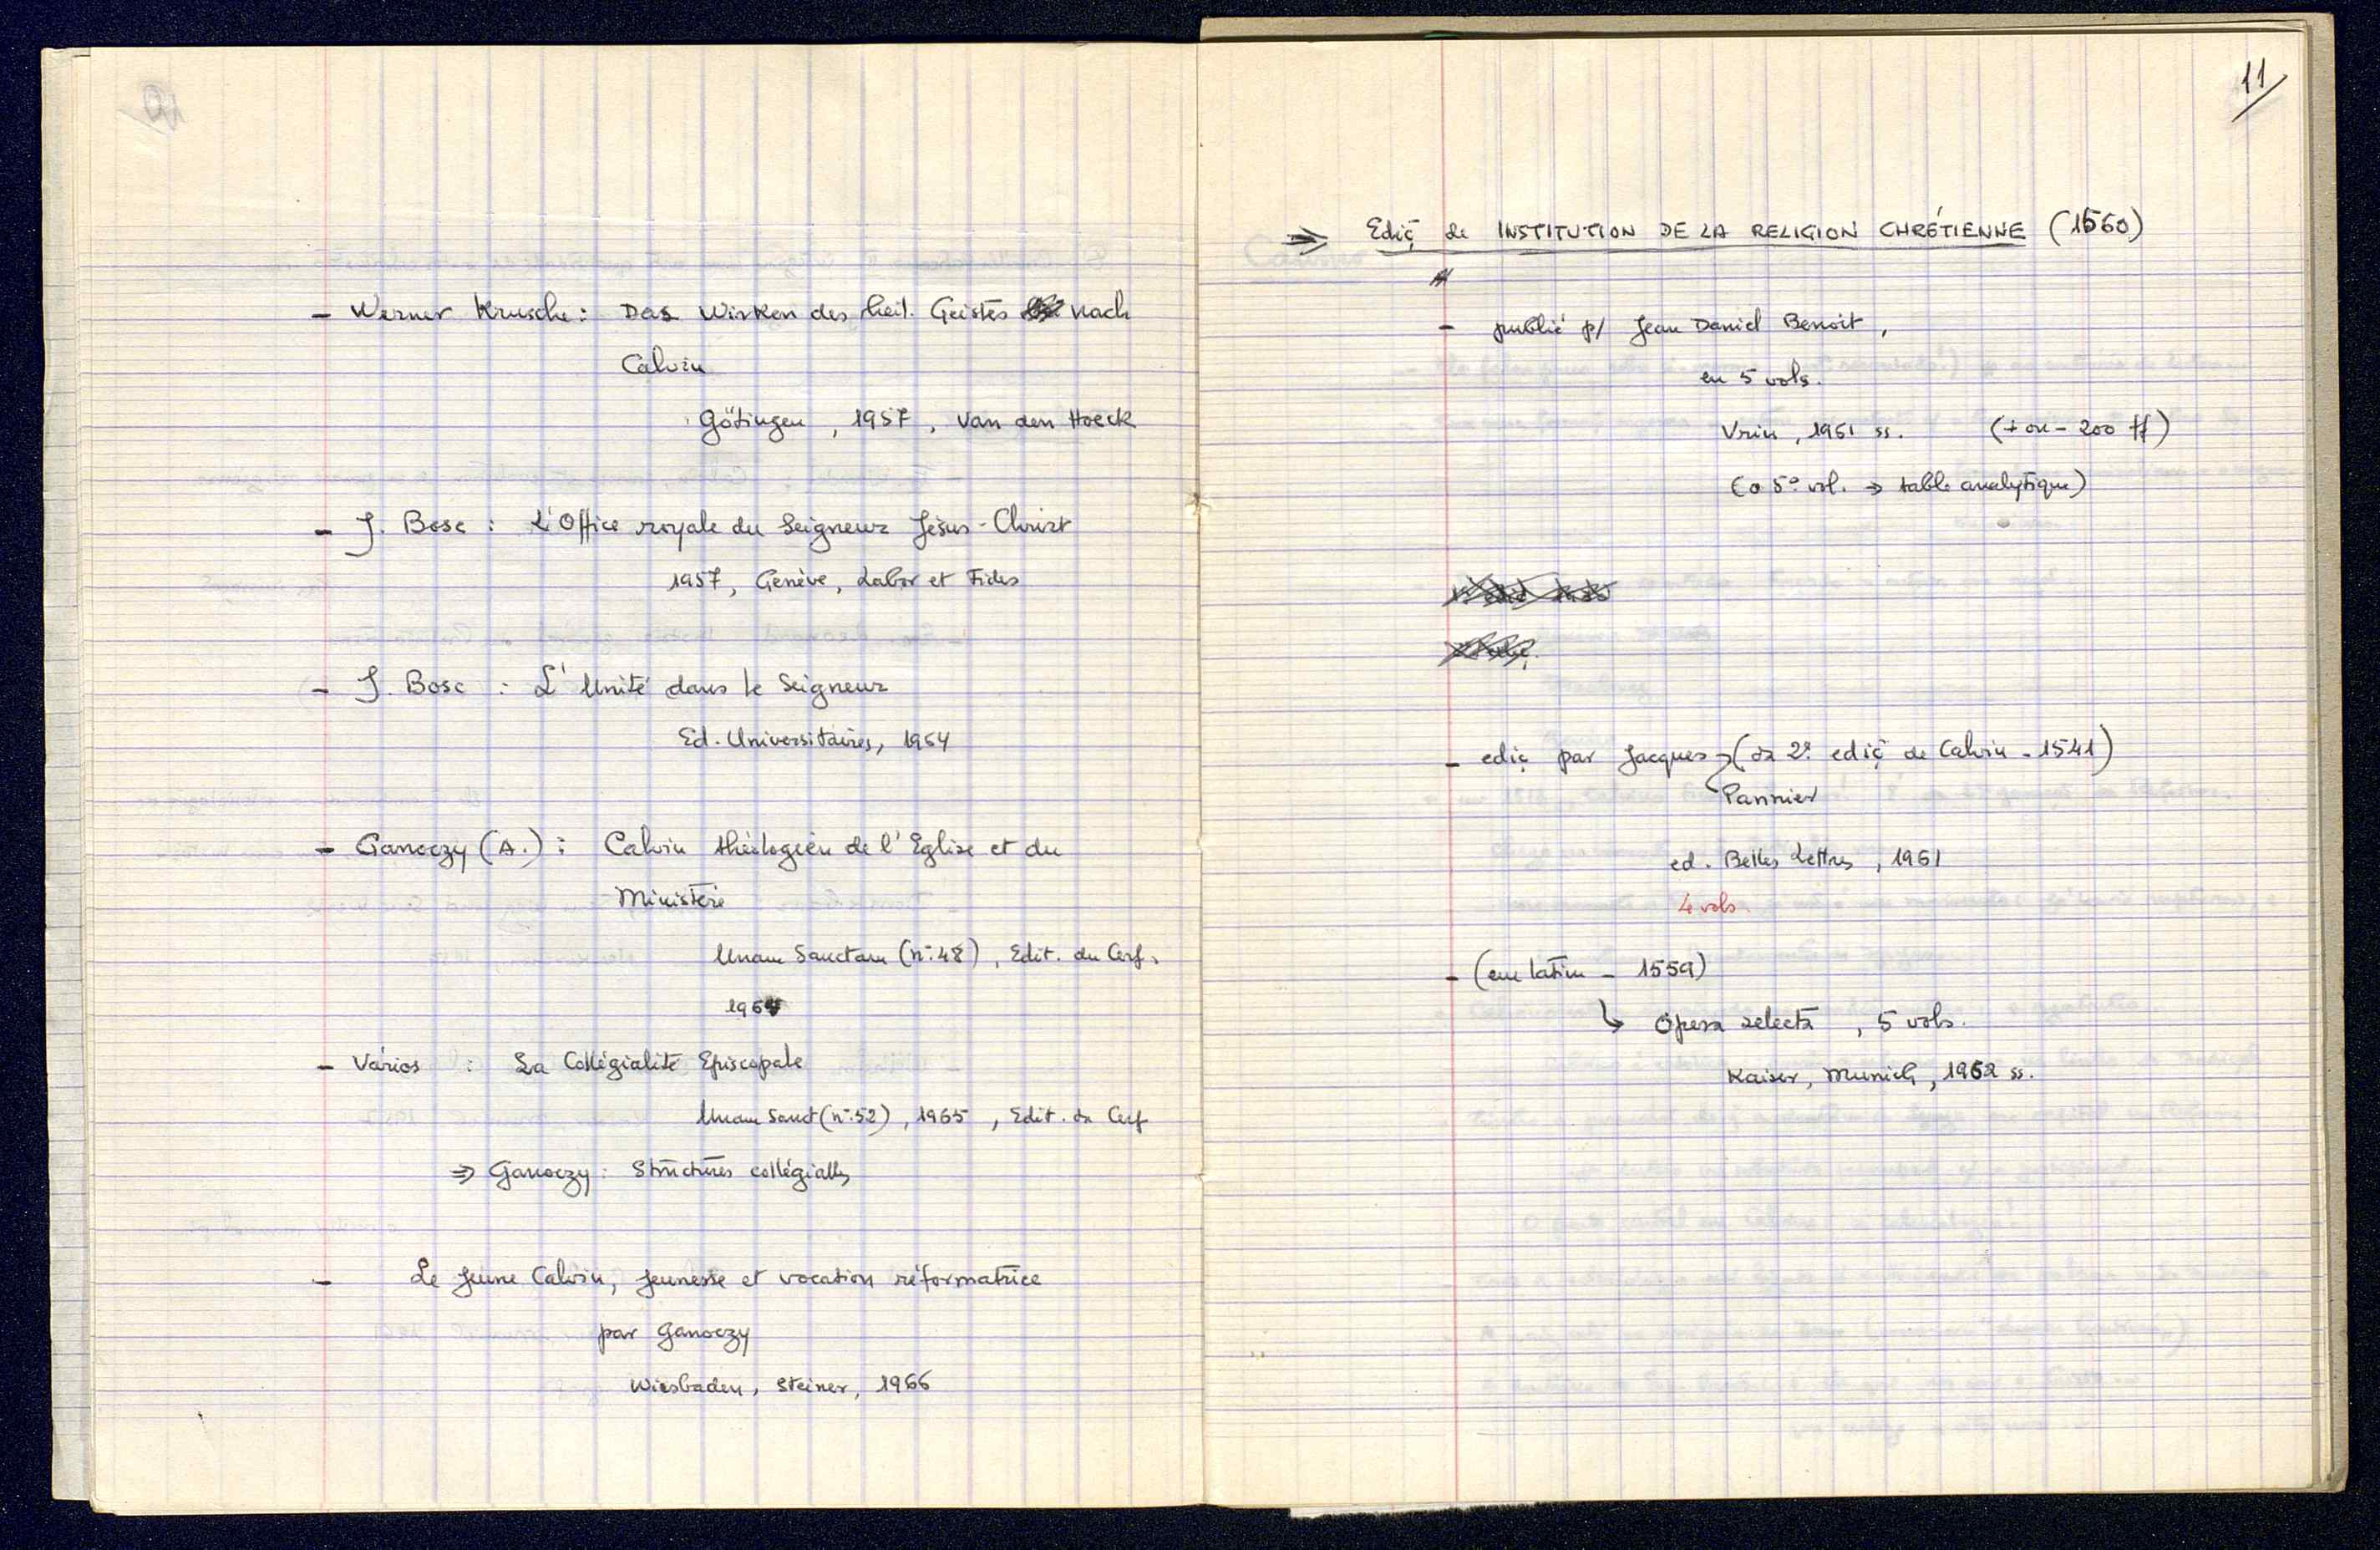 - Werner Krusche: Das Wirken des heil. Geistes nach
Calvin
Götingen, 1957, Van den Hoeck
- J. Bosc : L'Office royale du Seigneur Jésus-Christ
1957, Genève, Labor et Fides
- J. Bosc : L'Unité dans le Seigneur
Ed. Universitaires, 1964
- Ganoczy (A.) : Calvin théologien de l'Eglise et du
Ministère
Unam Sanctam (nº 48), Edit. du Cerf,
1964
- Vários : La Collégialité Episcopale
Unam Sanct (nº 52), 1965, Edit. du Cerf
⇒ Ganoczy : Structures collégialles
- Le Jeune Calvin, Jeunesse et vocation réformatrice
par Ganoczy
Wiesbaden, Steiner, 1966
11
⇒ Ediç̃ de INSTITUTION DE LA RELIGION CHRÉTIENNE (1560)
- publié p/ Jean Daniel Benoit,
en 5 vols.
Vrin, 1961 ss. (+ ou - 200 ff)
(o 5º vol. → table analytique)
- ediç̃ par Jacques (da 2ª ediç̃ de Calvin - 1541)
Pannier
ed. Belles Lettres, 1961
4 vols.
- (em latim - 1559)
↳ Opera selecta, 5 vols.
Kaiser, Munich, 1962 ss.